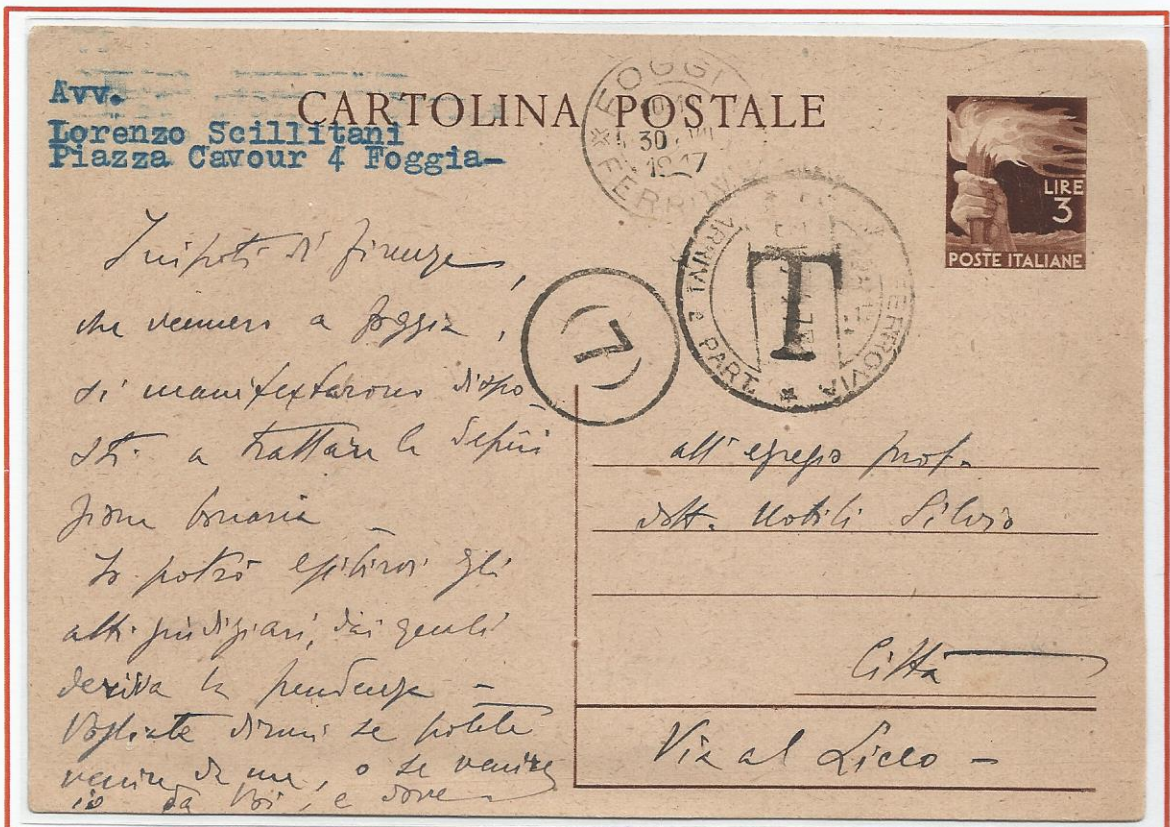 Avv.
Lorenzo Scillitani
Piazza Cavour 4 Foggia-
CARTOLINA POSTALE
FOGGIA
30 VII
1947
FERROVIA
LIRE
3
POSTE ITALIANE
FERROVIA
ARRIVI e PART.
T
(7)
I nipoti di Firenze,
che vennero a Foggia,
si manifestarono dispo
sti a trattare la defini
zione bonaria -
Io potrò esibirvi gli
atti giudiziari, dai quali
deriva la pendenza -
Vogliate dirmi se potete
venire da me, o se venire
io da Voi, e dove -
all'egregio prof.
dott. Nobili Silvio
Città
Via al Liceo -